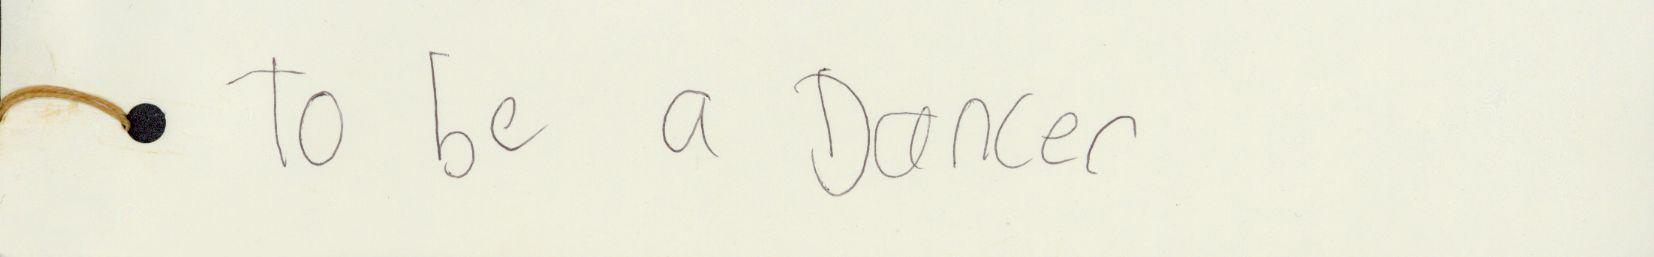 To be a Dancer